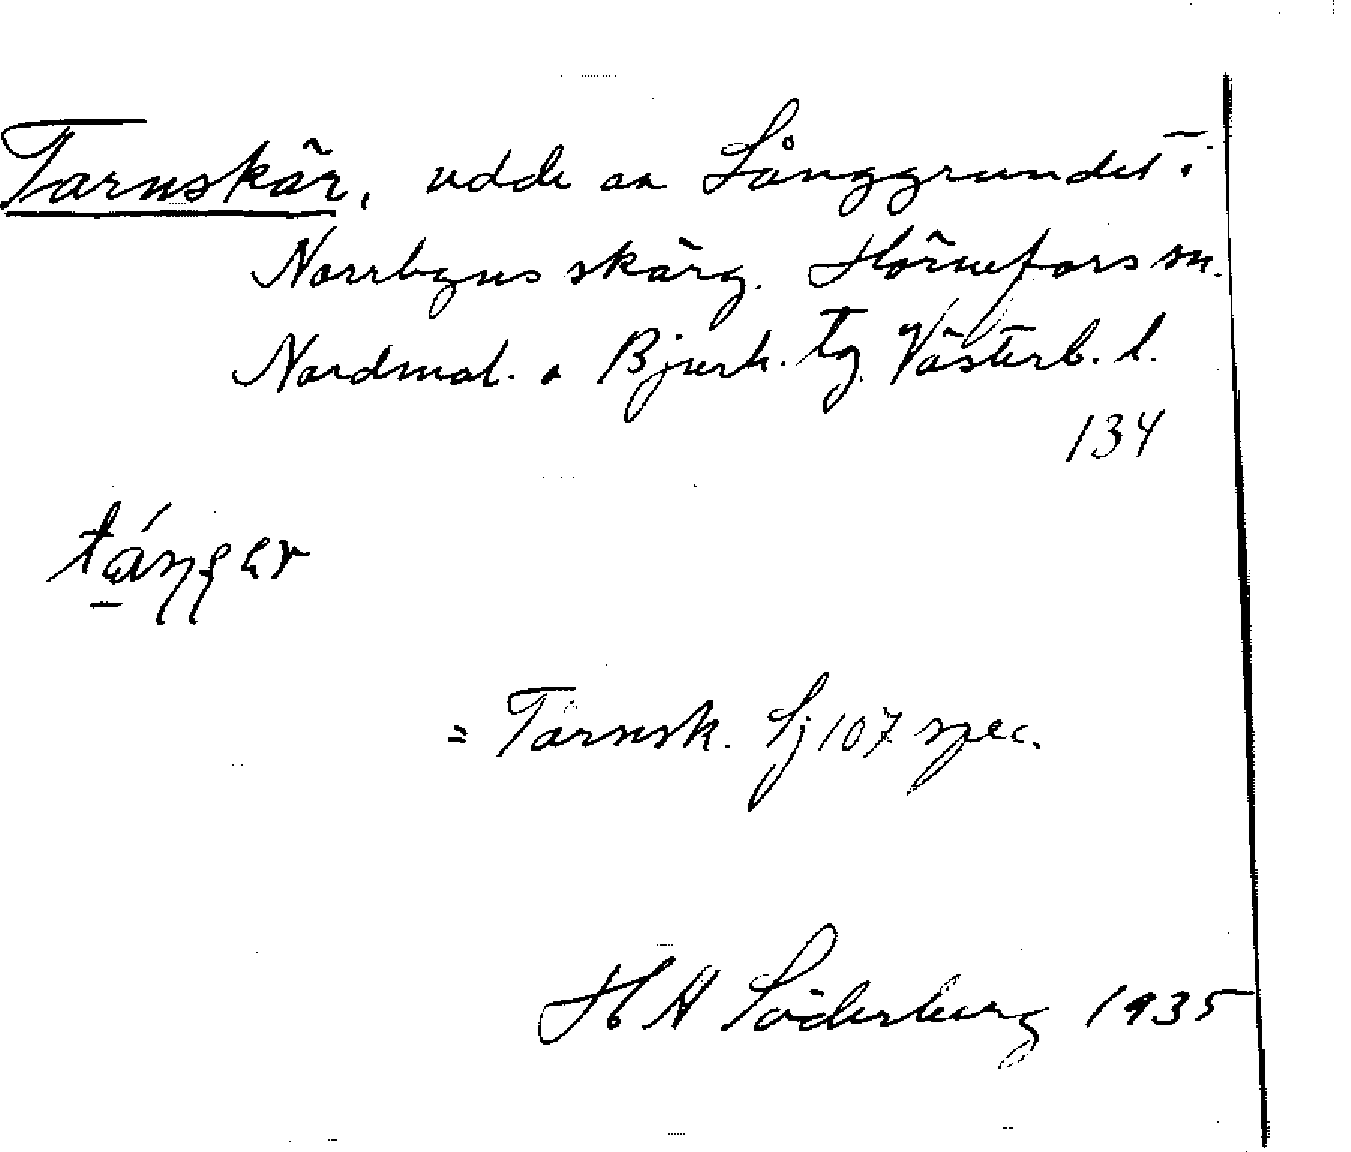 Tarnskär, udde av Långgrundet i
Norrbyns skärg. Hörnefors sn.
Nordmal. o Bjurh. tg. Västerb. l.
134
= Tarnsk. Sj 107 spec.
H H Söderberg 1935